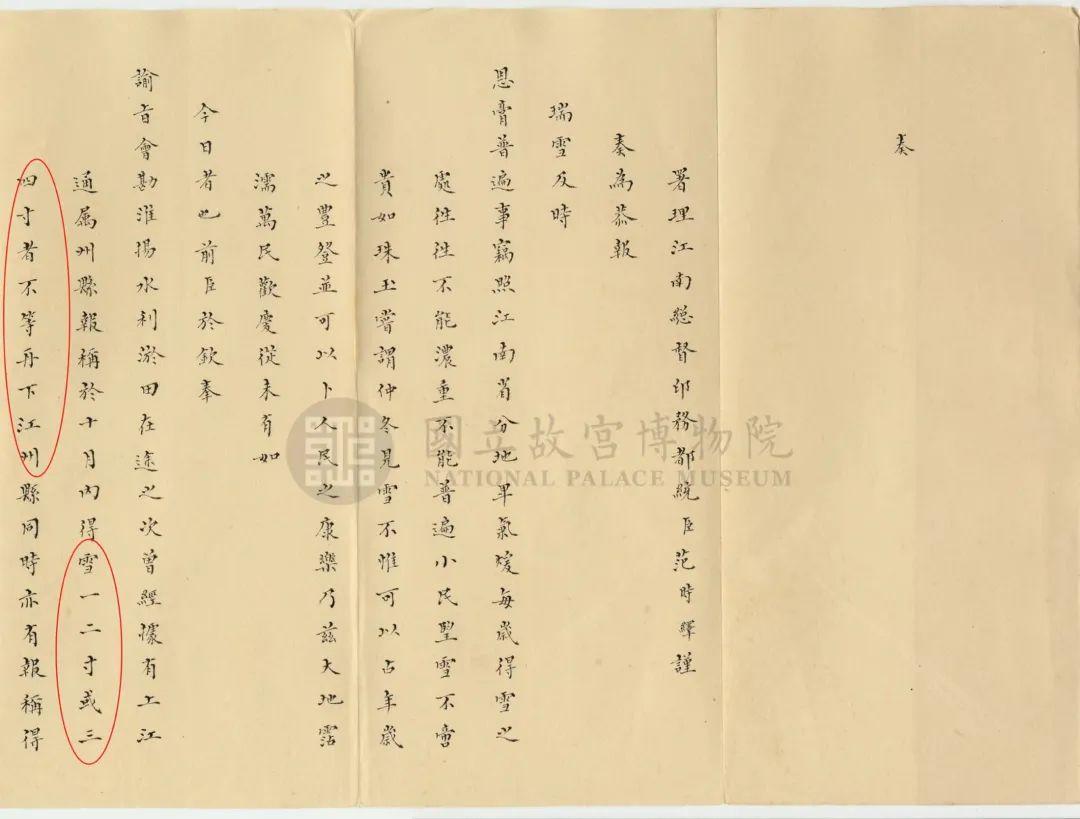 奏
署理江南總督印務都統臣范時繹謹
奏為恭報
瑞雪及時
恩膏普遍事竊照江南省分地畀氣煖每歲得雪之
處徃徃不能濃重不能普遍小民望雪不啻
貴如珠玉嘗謂仲冬見雪不惟可以占年歲
之豐登並可以卜人民之康樂乃茲天地霑
濡萬民歡慶從未有如
今日者也前臣於欽奉
諭旨會勘淮揚水利淤田在途之次曾經據有上江
通属州縣報稱於十月內得雪一二寸或三
四寸者不等再下江州縣同時亦有報稱得
國立故宮博物院
NATIONAL PALACE MUSEUM